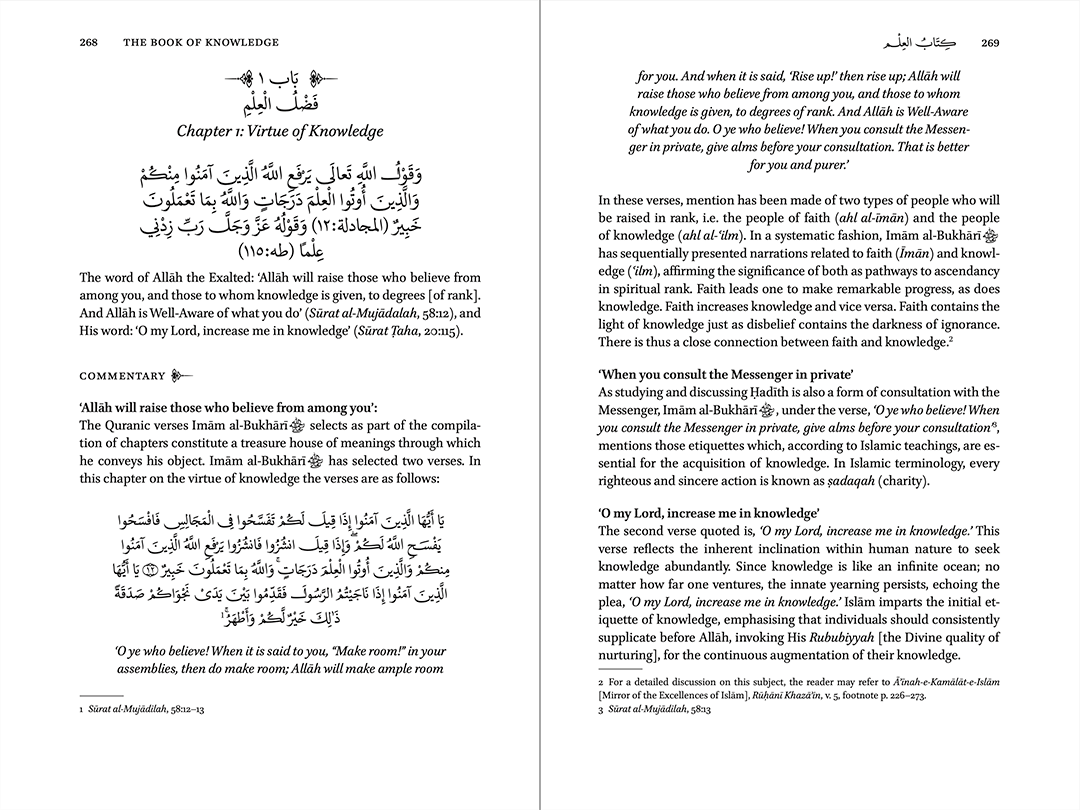 268 THE BOOK OF KNOWLEDGE
بَاب ١
فَضْلُ الْعِلْمِ
Chapter 1: Virtue of Knowledge
وَقَوْلُ اللَّهِ تَعَالَى يَرْفَعِ اللَّهُ الَّذِينَ آمَنُوا مِنْكُمْ
وَالَّذِينَ أُوتُوا الْعِلْمَ دَرَجَاتٍ وَاللَّهُ بِمَا تَعْمَلُونَ
خَبِيرٌ (المجادلة:١٢) وَقَوْلُهُ عَزَّ وَجَلَّ رَبِّ زِدْنِي
عِلْمًا (طه:١١٥)
The word of Allāh the Exalted: ‘Allāh will raise those who believe from
among you, and those to whom knowledge is given, to degrees [of rank].
And Allāh is Well-Aware of what you do’ (Sūrat al-Mujādalah, 58:12), and
His word: ‘O my Lord, increase me in knowledge’ (Sūrat Ṭaha, 20:115).
COMMENTARY
‘Allāh will raise those who believe from among you’:
The Quranic verses Imām al-Bukhārī selects as part of the compila-
tion of chapters constitute a treasure house of meanings through which
he conveys his object. Imām al-Bukhārī has selected two verses. In
this chapter on the virtue of knowledge the verses are as follows:
يَا أَيُّهَا الَّذِينَ آمَنُوا إِذَا قِيلَ لَكُمْ تَفَسَّحُوا فِي الْمَجَالِسِ فَافْسَحُوا
يَفْسَحِ اللَّهُ لَكُمْ ۖ وَإِذَا قِيلَ انْشُزُوا فَانْشُزُوا يَرْفَعِ اللَّهُ الَّذِينَ آمَنُوا
مِنكُمْ وَالَّذِينَ أُوتُوا الْعِلْمَ دَرَجَاتٍ ۚ وَاللَّهُ بِمَا تَعْمَلُونَ خَبِيرٌ ﴿١٢﴾ يَا أَيُّهَا
الَّذِينَ آمَنُوا إِذَا نَاجَيْتُمُ الرَّسُولَ فَقَدِّمُوا بَيْنَ يَدَىْ نَجْوَاكُمْ صَدَقَةً
ذَٰلِكَ خَيْرٌ لَّكُمْ وَأَطْهَرُ ۚ¹
‘O ye who believe! When it is said to you, “Make room!” in your
assemblies, then do make room; Allāh will make ample room
1 Sūrat al-Mujādilah, 58:12–13
كِتَابُ العِلْم 269
for you. And when it is said, ‘Rise up!’ then rise up; Allāh will
raise those who believe from among you, and those to whom
knowledge is given, to degrees of rank. And Allāh is Well-Aware
of what you do. O ye who believe! When you consult the Messen-
ger in private, give alms before your consultation. That is better
for you and purer.’
In these verses, mention has been made of two types of people who will
be raised in rank, i.e. the people of faith (ahl al-īmān) and the people
of knowledge (ahl al-‘ilm). In a systematic fashion, Imām al-Bukhārī
has sequentially presented narrations related to faith (Īmān) and knowl-
edge (‘ilm), affirming the significance of both as pathways to ascendancy
in spiritual rank. Faith leads one to make remarkable progress, as does
knowledge. Faith increases knowledge and vice versa. Faith contains the
light of knowledge just as disbelief contains the darkness of ignorance.
There is thus a close connection between faith and knowledge.²
‘When you consult the Messenger in private’
As studying and discussing Ḥadīth is also a form of consultation with the
Messenger, Imām al-Bukhārī, under the verse, ‘O ye who believe! When
you consult the Messenger in private, give alms before your consultation’³,
mentions those etiquettes which, according to Islamic teachings, are es-
sential for the acquisition of knowledge. In Islamic terminology, every
righteous and sincere action is known as ṣadaqah (charity).
‘O my Lord, increase me in knowledge’
The second verse quoted is, ‘O my Lord, increase me in knowledge.’ This
verse reflects the inherent inclination within human nature to seek
knowledge abundantly. Since knowledge is like an infinite ocean; no
matter how far one ventures, the innate yearning persists, echoing the
plea, ‘O my Lord, increase me in knowledge.’ Islām imparts the initial et-
iquette of knowledge, emphasising that individuals should consistently
supplicate before Allāh, invoking His Rububiyyah [the Divine quality of
nurturing], for the continuous augmentation of their knowledge.
2 For a detailed discussion on this subject, the reader may refer to Ā’īnah-e-Kamālāt-e-Islām
[Mirror of the Excellences of Islām], Rūḥānī Khazā’in, v. 5, footnote p. 226–273.
3 Sūrat al-Mujādilah, 58:13